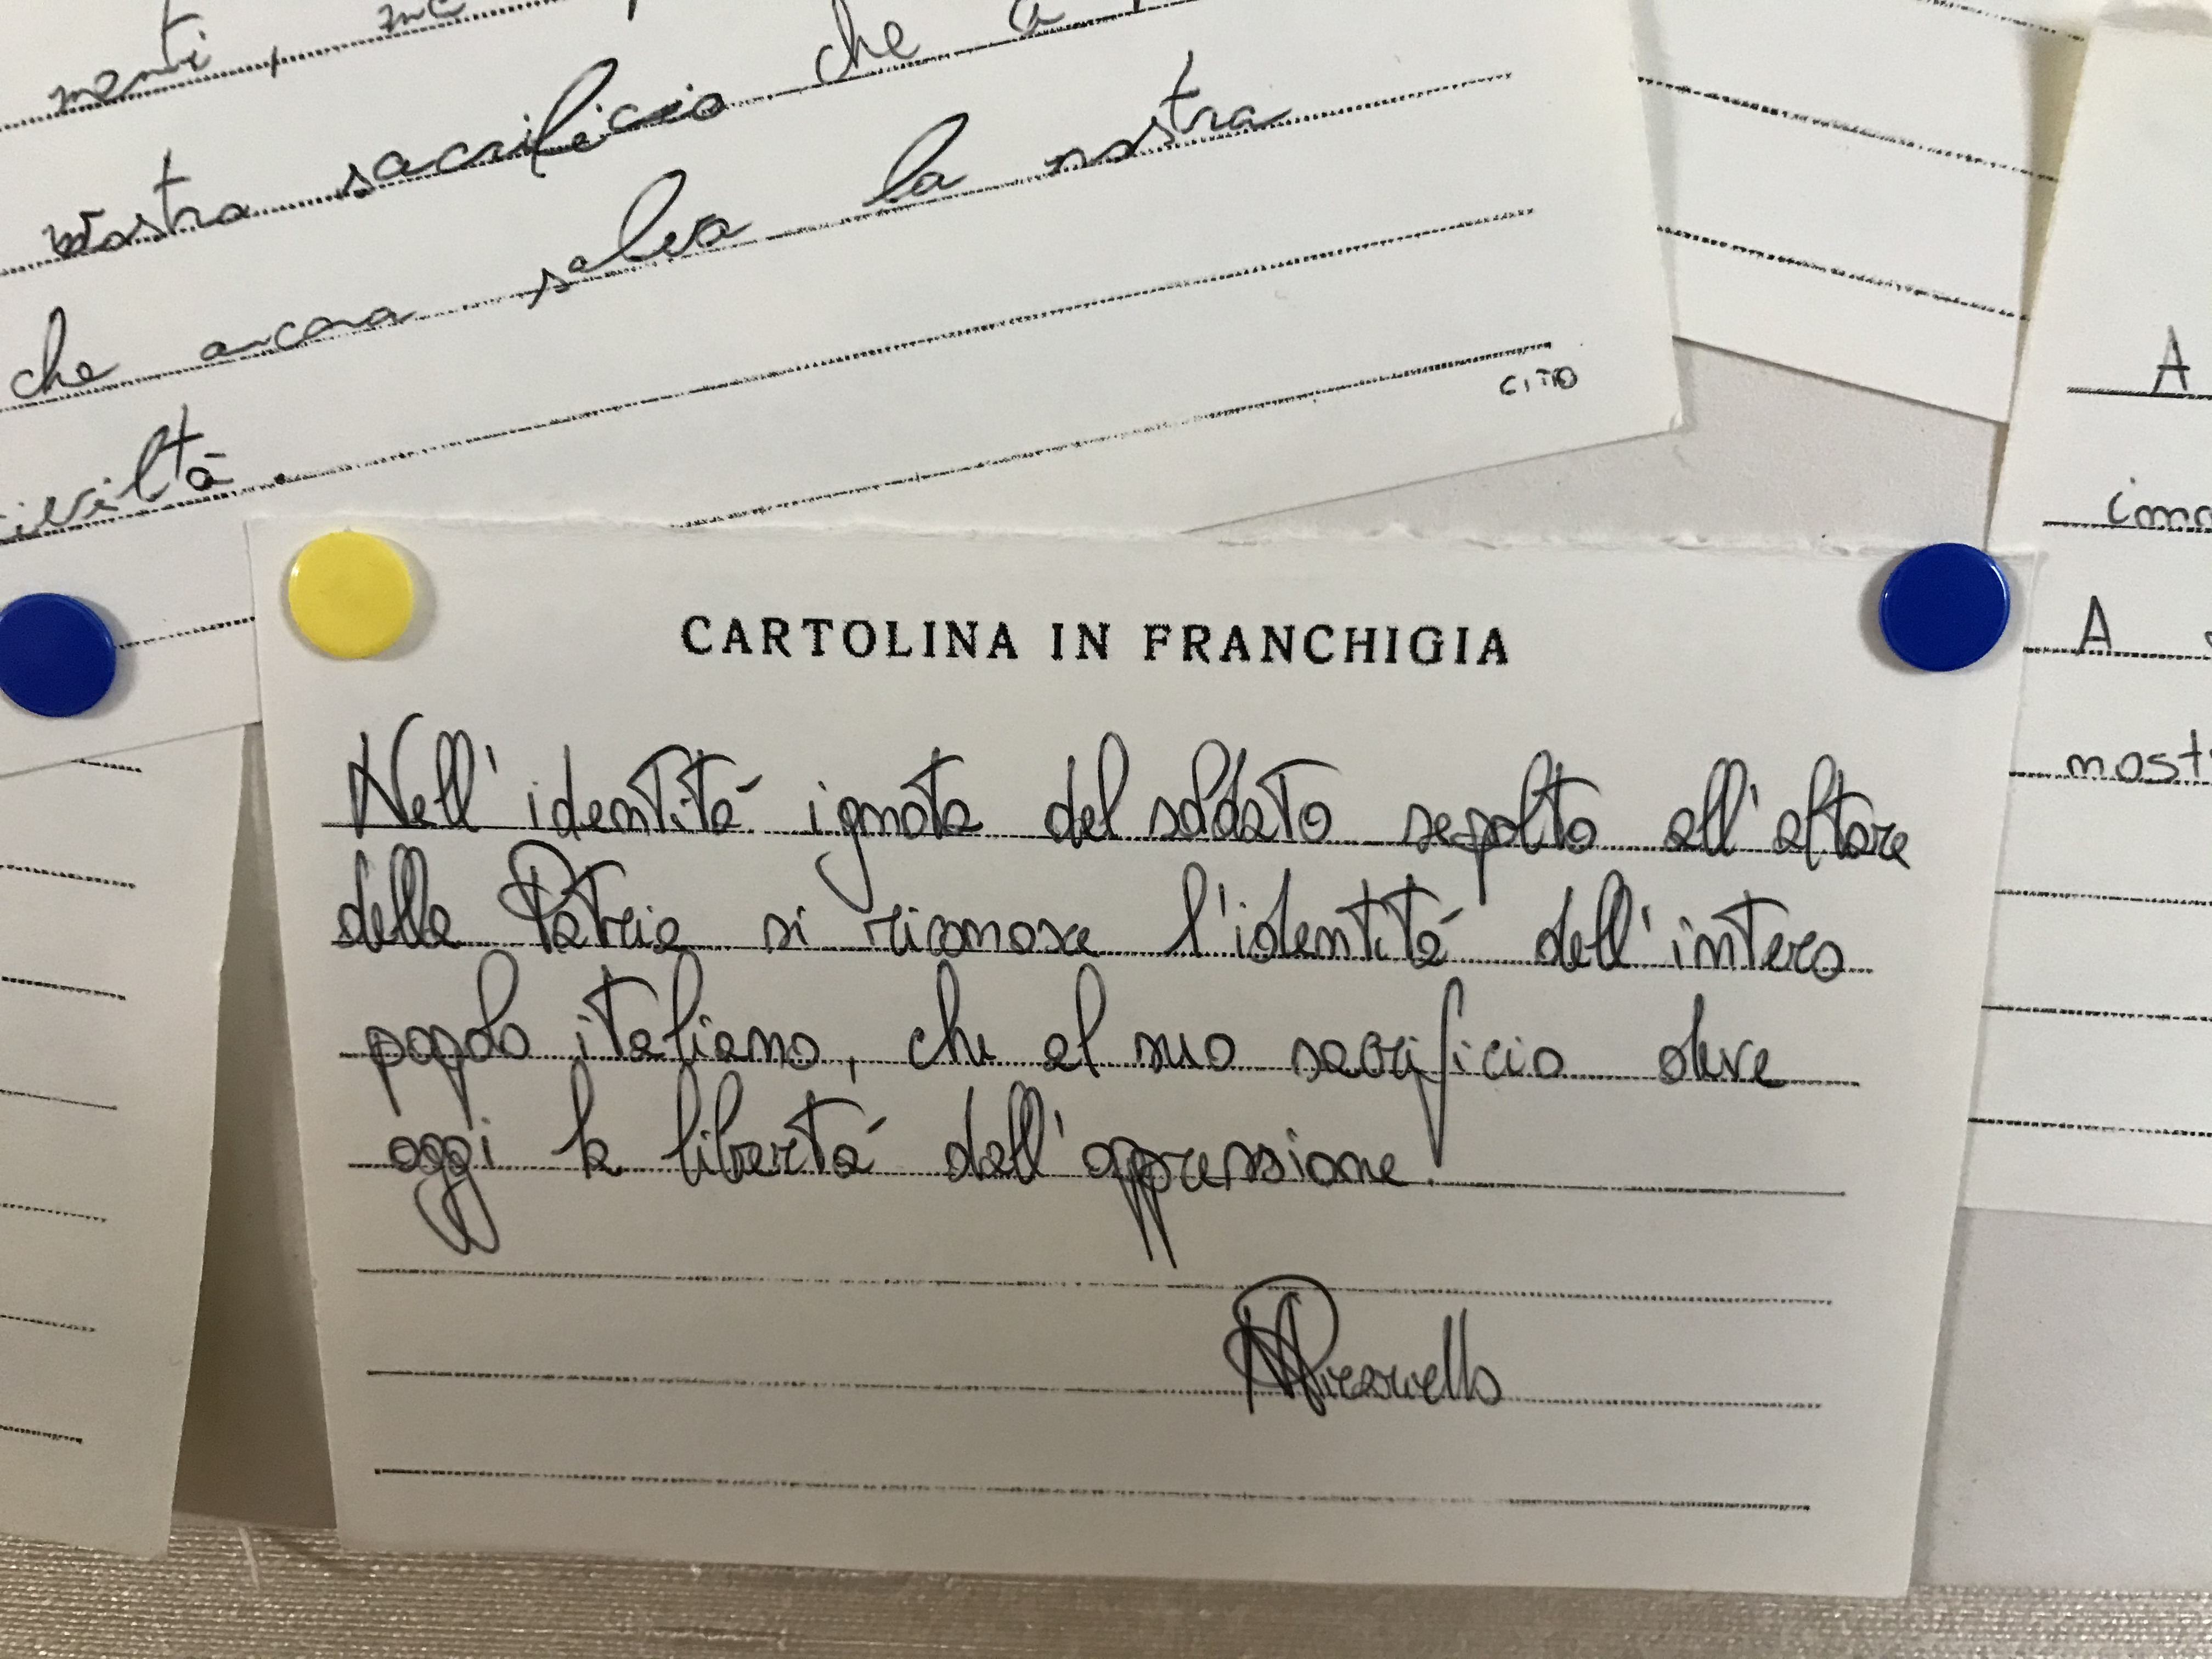 menti, me
vostro sacrificio che
che ancora salva la nostra
civiltà.
CITO
CARTOLINA IN FRANCHIGIA
Nell'identità ignota del soldato sepolto all'altare
della Patria si riconosce l'identità dell'intero
popolo italiano, che al suo sacrificio deve
oggi la libertà dall'oppressione.
A
A